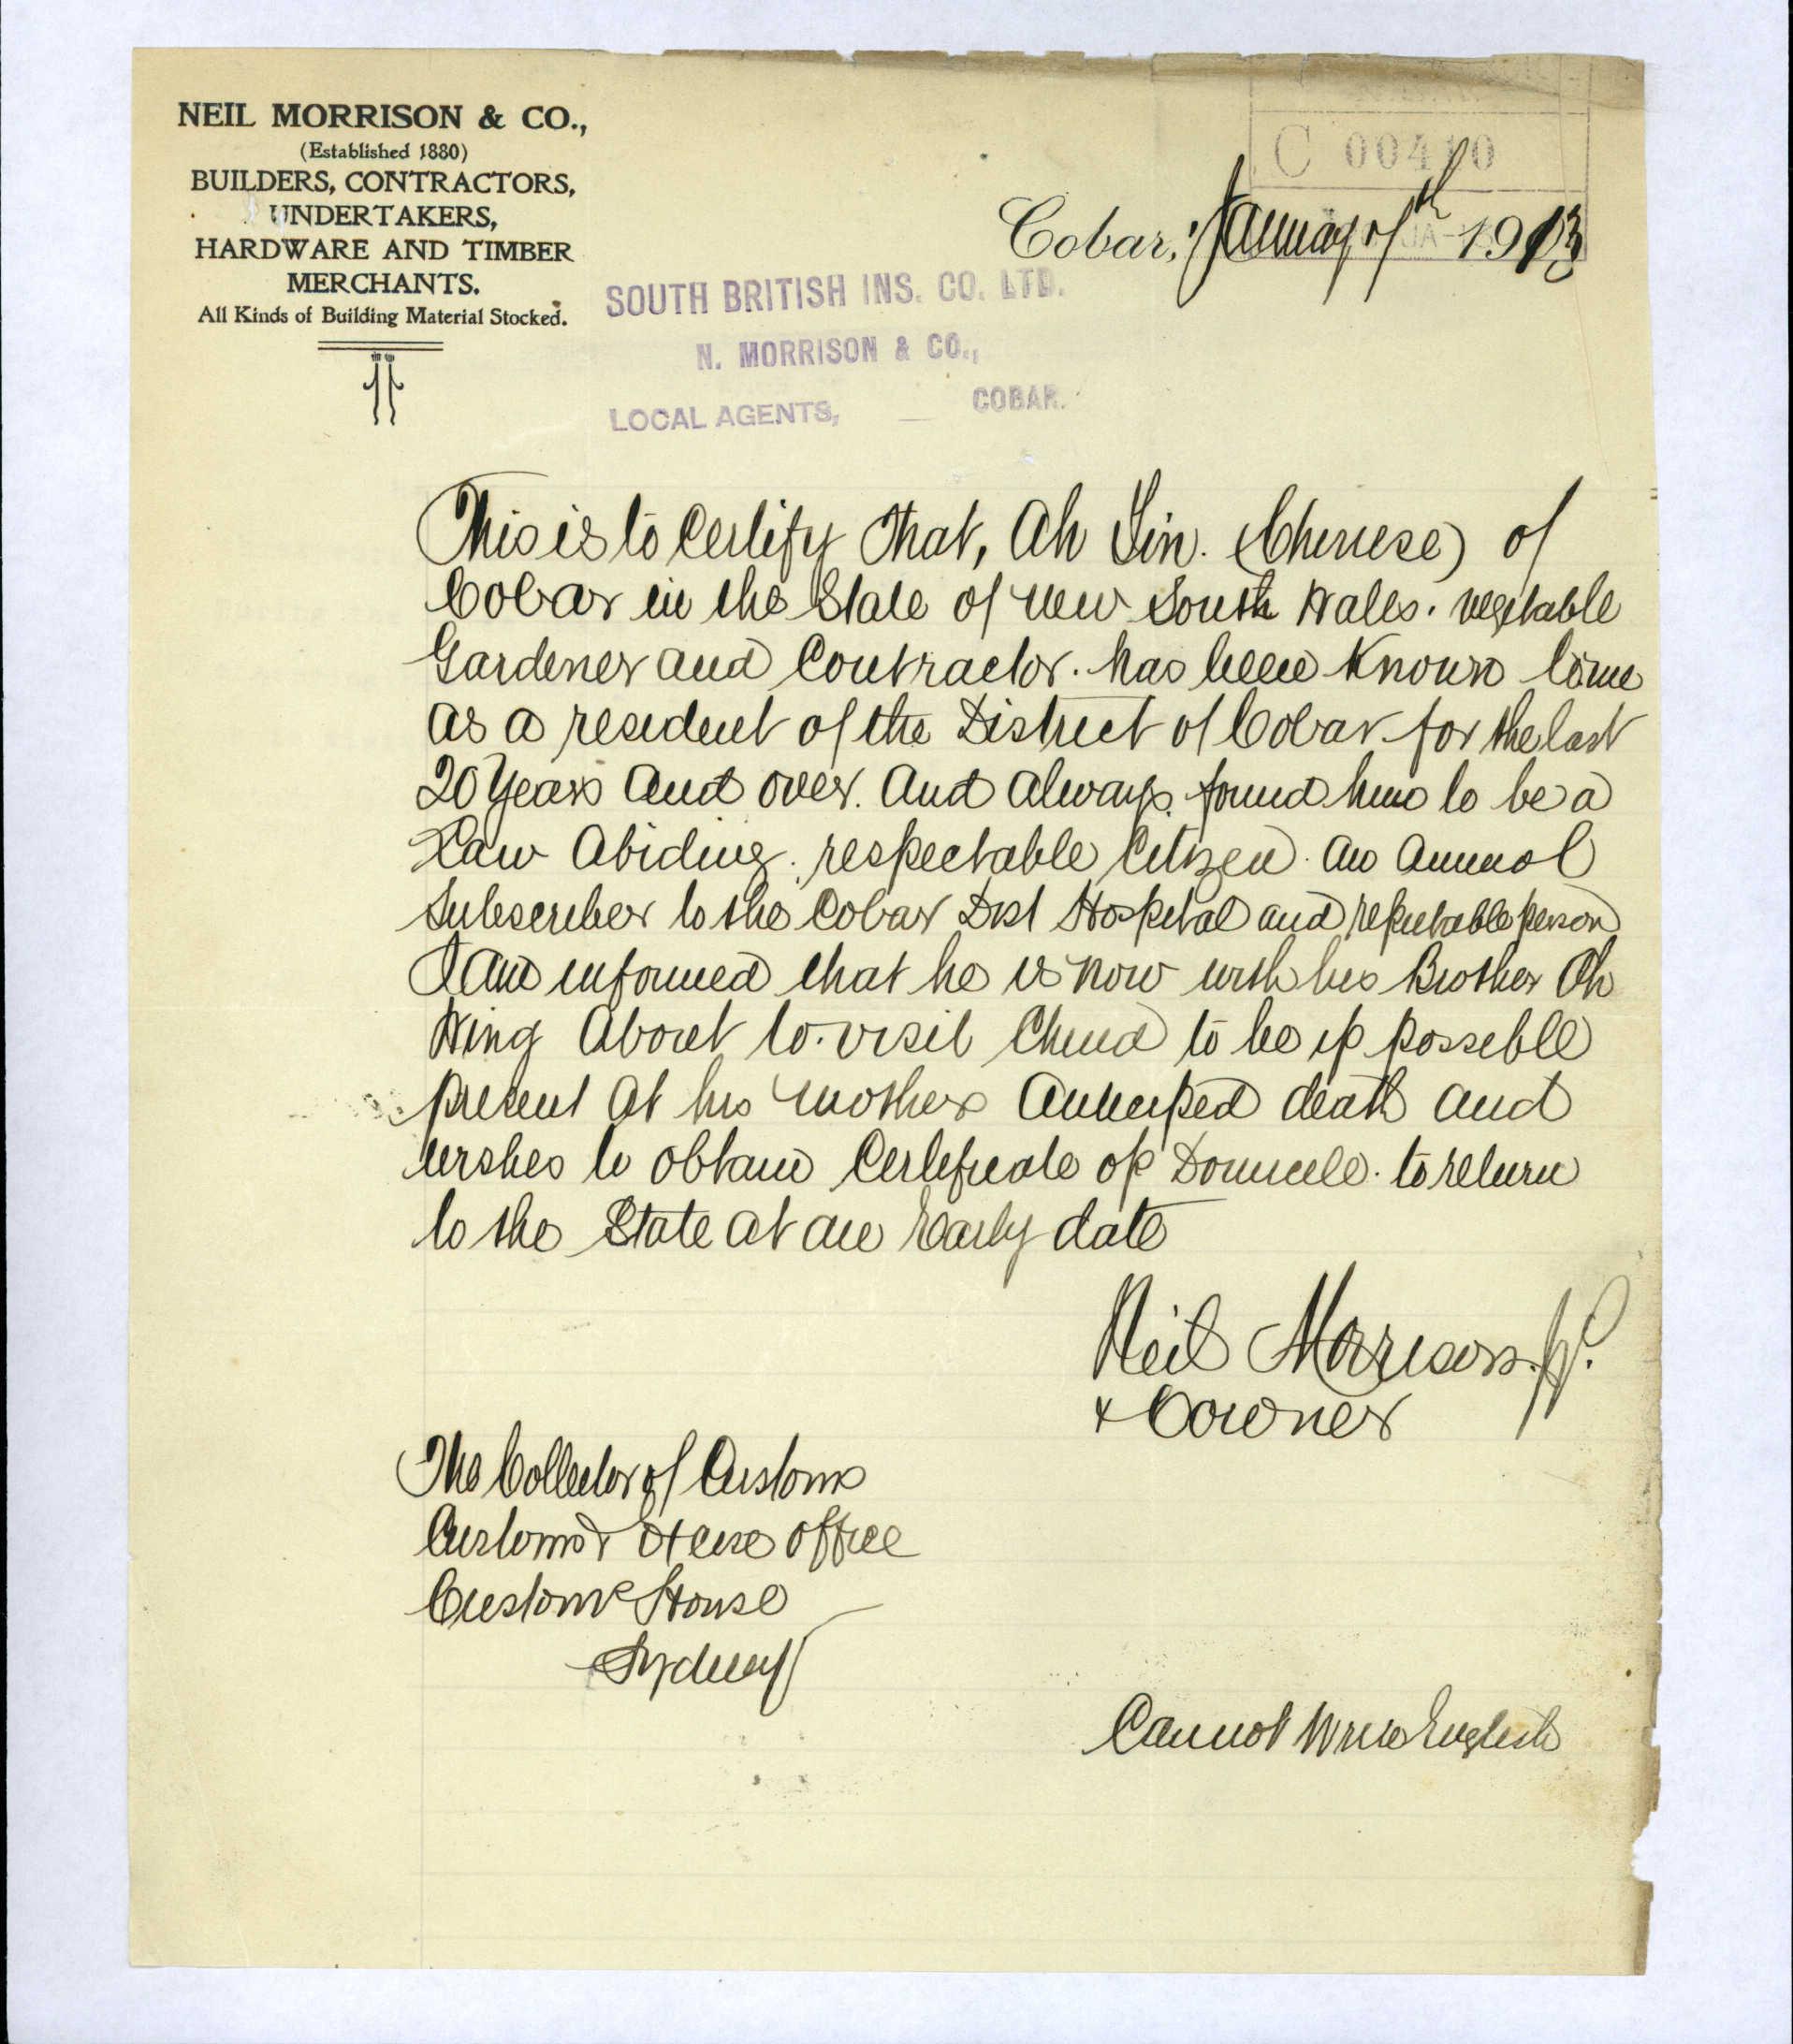 NEIL MORRISON & CO.,
(Established 1880)
BUILDERS, CONTRACTORS,
UNDERTAKERS,
HARDWARE AND TIMBER
MERCHANTS.
All Kinds of Building Material Stocked.
C 00410
Cobar, January 7th 1913
SOUTH BRITISH INS. CO. LTD.
N. MORRISON & CO.,
LOCAL AGENTS, COBAR.
This is to Certify That, Ah (Chinese) of
Cobar in the State of New South Wales. vegetable
Gardener and Contractor. has been Known to me
as a resident of the District of Cobar for the last
20 Years and over. And always found him to be a
Law Abiding. respectable Citizen. An Annual
Subscriber to the Cobar Dist Hospital and reputable person
I am informed that he is now with his Brother Ah
Wing About to visit China to be if possible
present at his mothers death and
wishes to obtain Certificate of Domicile. to return
to the State at an Early date
Neil Morrison. JP.
& Coroner
The Collector of Customs
Customs & Excise office
Customs House
Sydney
Cannot Write English